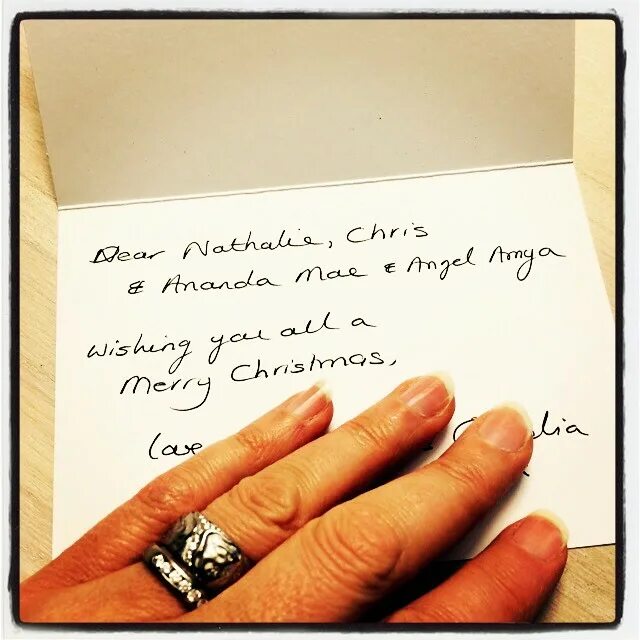 Dear Nathalie, Chris
& Ananda Mae & Angel Amya
Wishing you all a
Merry Christmas,
love